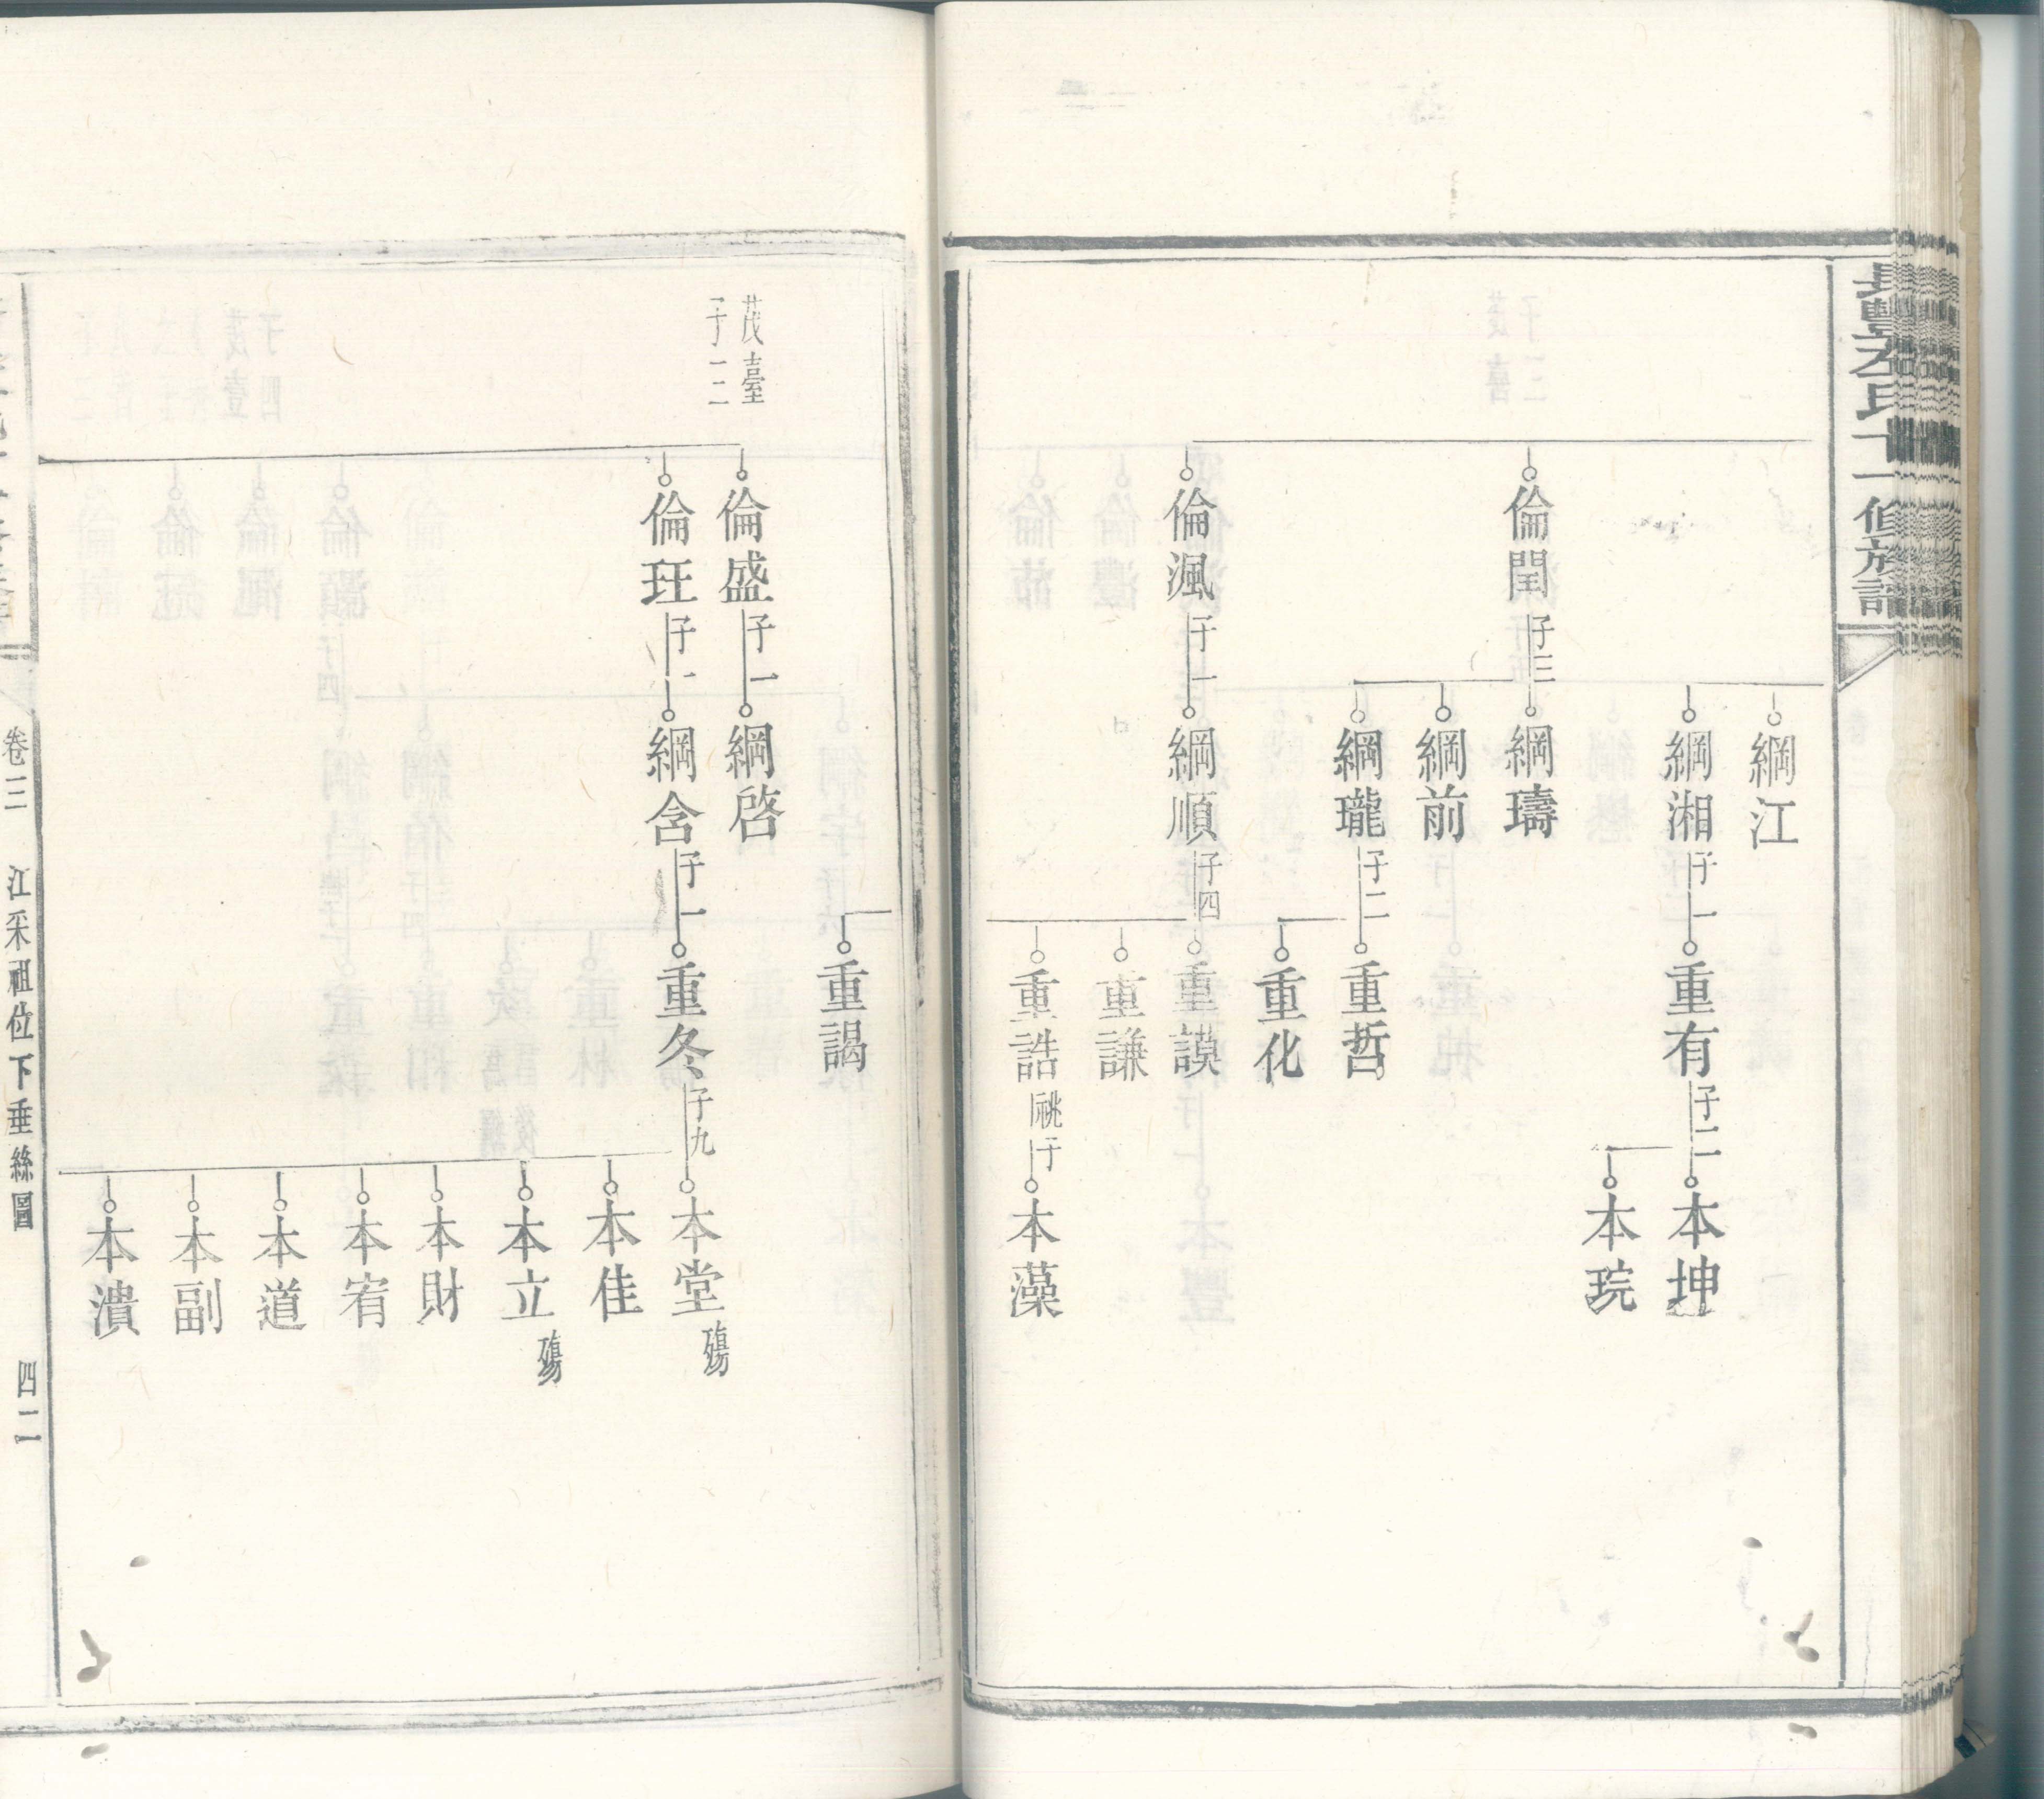 長豐左氏十一修族譜
倫閏 子三
倫渢 子一
綱江
綱湘 子一
綱璹
綱前
綱瓏 子二
綱順 子四
重有 子二
重哲
重化
重謨
重謙
重誥 祧子
本坤
本琓
本藻
茂臺
子一二
倫盛 子一
倫玨 子一
綱啓
綱含 子一
重謁
重冬 子九
本堂 殤
本佳
本立 殤
本財
本宥
本道
本副
本潰
卷三 江采祖位下垂絲圖 四二